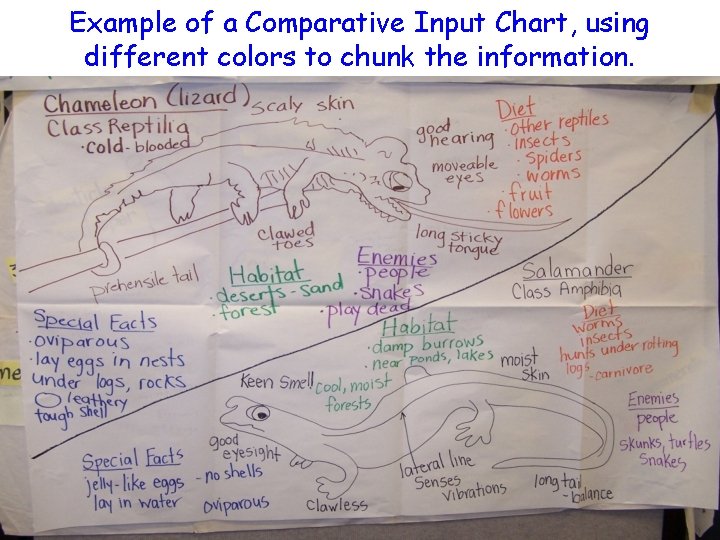 Example of a Comparative Input Chart, using
different colors to chunk the information.
Chameleon (lizard)
Class Reptilia
·cold-blooded
scaly skin
good
hearing
moveable
eyes
Diet
·other reptiles
·insects
·spiders
·worms
·fruit
·flowers
clawed
toes
long sticky
tongue
prehensile tail
Habitat
·deserts-sand
·forest
Enemies
·people
·snakes
·play dead
Special Facts
·oviparous
·lay eggs in nests
under logs, rocks
leathery
tough shell
Salamander
Class Amphibia
Diet
worms
insects
hunts under rotting
logs
-carnivore
Habitat
·damp burrows
·near ponds, lakes
cool, moist
forests
moist
skin
Keen Smell
Enemies
people
skunks, turtles
snakes
good
eyesight
Special Facts
jelly-like eggs
lay in water
-no shells
oviparous
clawless
lateral line
senses
vibrations
long tail
-balance
me